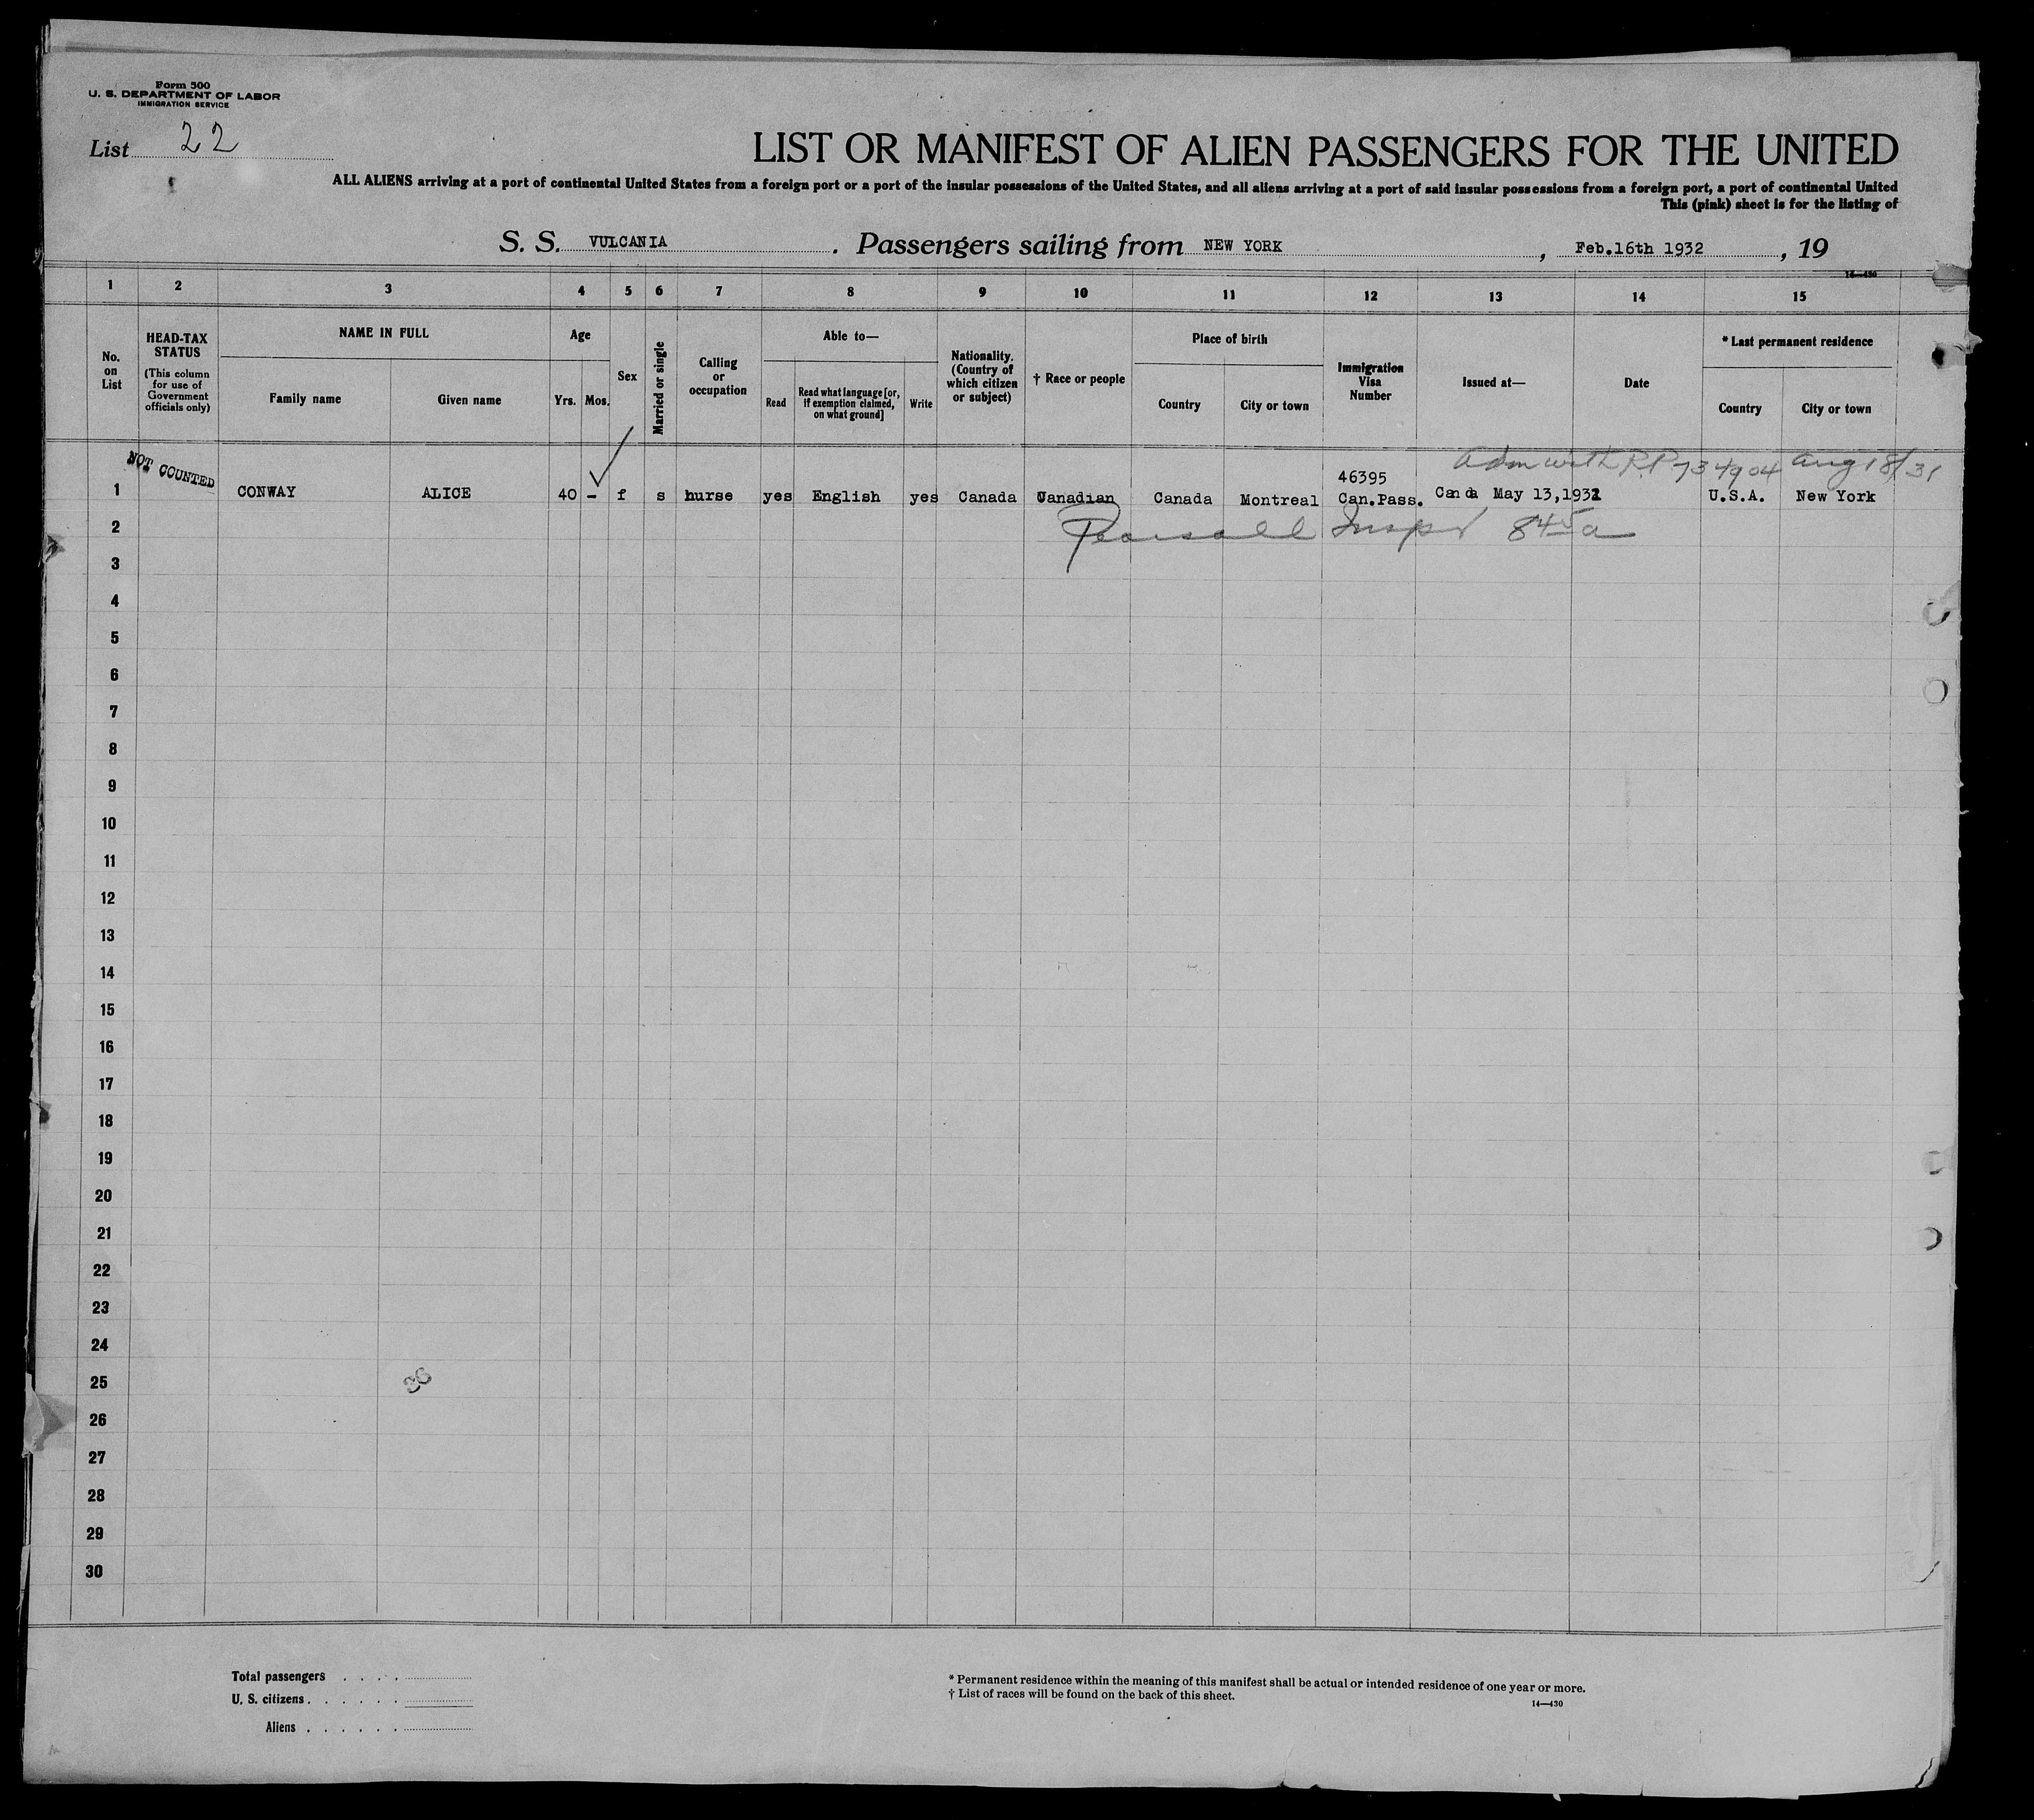 Form 500
U. S. DEPARTMENT OF LABOR
IMMIGRATION SERVICE
List 22
LIST OR MANIFEST OF ALIEN PASSENGERS FOR THE UNITED
ALL ALIENS arriving at a port of continental United States from a foreign port or a port of the insular possessions of the United States, and all aliens arriving at a port of said insular possessions from a foreign port, a port of continental United
This (pink) sheet is for the listing of
S. S. VULCANIA. Passengers sailing from NEW YORK, Feb.16th 1932, 19
14—430
1 2 3 4 5 6 7 8 9 10 11 12 13 14 15
No. on List
HEAD-TAX STATUS (This column for use of Government officials only)
NAME IN FULL
Family name
Given name
Age
Yrs. Mos.
Sex
Married or single
Calling or occupation
Able to—
Read
Read what language [or, if exemption claimed, on what ground]
Write
Nationality. (Country of which citizen or subject)
† Race or people
Place of birth
Country
City or town
Immigration Visa Number
Issued at—
Date
* Last permanent residence
Country
City or town
Adm with R.P. 734904 Aug 18/31
NOT COUNTED
46395
1 CONWAY ALICE 40 - f s nurse yes English yes Canada Canadian Canada Montreal Can.Pass. Canda May 13,1931 U.S.A. New York
2 Pearsall Inspr 845a
3
4
5
6
7
8
9
10
11
12
13
14
15
16
17
18
19
20
21
22
23
24
25
36
26
27
28
29
30
Total passengers . . . .
U. S. citizens . . . . . .
Aliens . . . . . .
* Permanent residence within the meaning of this manifest shall be actual or intended residence of one year or more.
† List of races will be found on the back of this sheet.
14—430